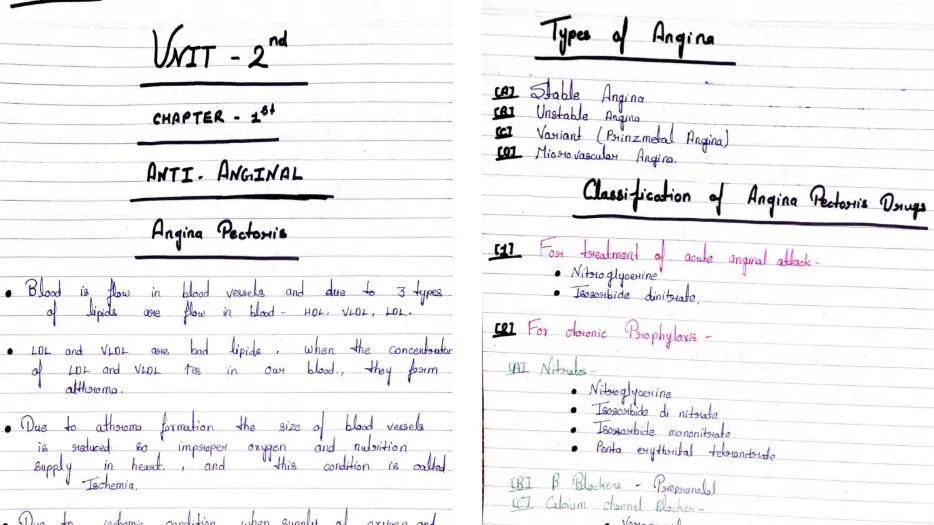 UNIT - 2nd
CHAPTER - 1st
ANTI - ANGINAL
Angina Pectoris
• Blood is flow in blood vessels and due to 3 types
of lipids are flow in blood - HDL, VLDL, LDL.
• LDL and VLDL are bad lipids, when the concentrator
of LDL and VLDL ↑es in our blood., they form
atthroma.
• Due to athroma formation the size of blood vessels
is reduced so improper oxygen and nutrition
supply in heart., and this condition is called
Ischemia.
• Due to ischemic condition when supply of oxygen and
Types of Angina
[A] Stable Angina
[B] Unstable Angina
[C] Variant (Prinzmetal Angina)
[D] Microvascular Angina.
Classification of Angina Pectoris Drugs
[1] For treatment of acute anginal attack -
• Nitroglycerine
• Isosorbide dinitrate.
[2] For chronic Prophylaxis -
[A] Nitrates -
• Nitroglycerine
• Isosorbide di nitrate
• Isosorbide mononitrate
• Penta erythrital tetranitrate
[B] B Blockers - Propranolol
[C] Calcium channel Blocker -